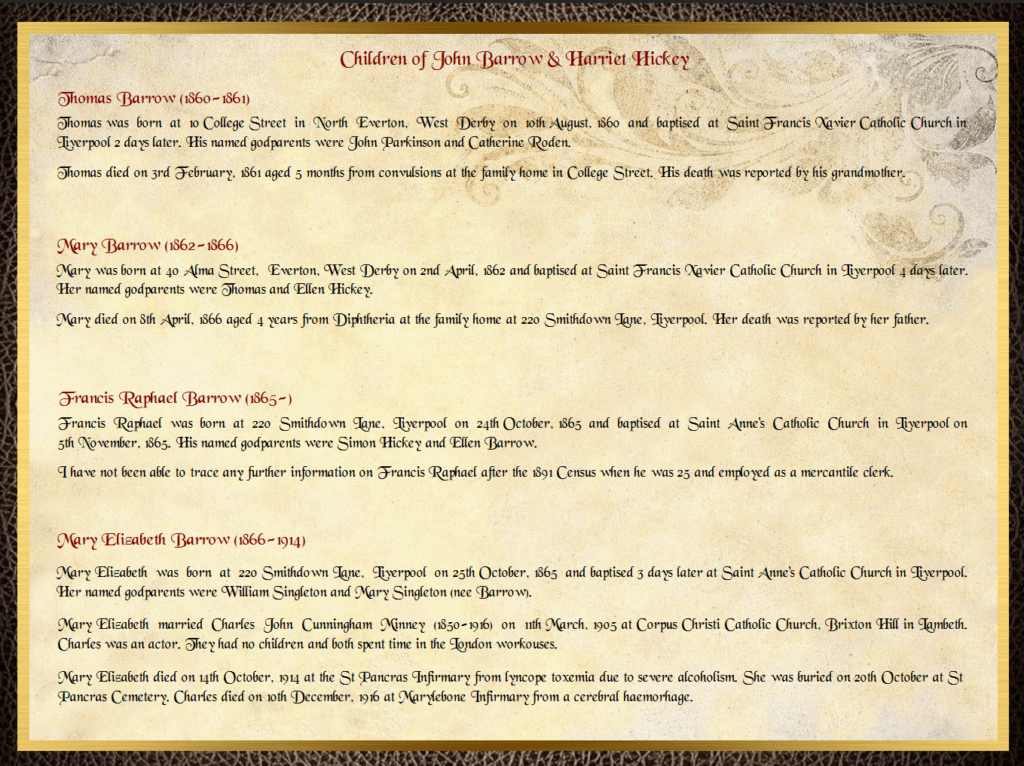 Children of John Barrow & Harriet Hickey
Thomas Barrow (1860-1861)
Thomas was born at 10 College Street in North Everton, West Derby on 10th August, 1860 and baptised at Saint Francis Xavier Catholic Church in
Liverpool 2 days later. His named godparents were John Parkinson and Catherine Roden.
Thomas died on 3rd February, 1861 aged 5 months from convulsions at the family home in College Street. His death was reported by his grandmother.
Mary Barrow (1862-1866)
Mary was born at 40 Alma Street, Everton, West Derby on 2nd April, 1862 and baptised at Saint Francis Xavier Catholic Church in Liverpool 4 days later.
Her named godparents were Thomas and Ellen Hickey.
Mary died on 8th April, 1866 aged 4 years from Diphtheria at the family home at 220 Smithdown Lane, Liverpool. Her death was reported by her father.
Francis Raphael Barrow (1865-)
Francis Raphael was born at 220 Smithdown Lane, Liverpool on 24th October, 1865 and baptised at Saint Anne's Catholic Church in Liverpool on
5th November, 1865. His named godparents were Simon Hickey and Ellen Barrow.
I have not been able to trace any further information on Francis Raphael after the 1891 Census when he was 25 and employed as a mercantile clerk.
Mary Elizabeth Barrow (1866-1914)
Mary Elizabeth was born at 220 Smithdown Lane, Liverpool on 25th October, 1865 and baptised 3 days later at Saint Anne's Catholic Church in Liverpool.
Her named godparents were William Singleton and Mary Singleton (nee Barrow).
Mary Elizabeth married Charles John Cunningham Minney (1850-1916) on 11th March, 1905 at Corpus Christi Catholic Church, Brixton Hill in Lambeth.
Charles was an actor. They had no children and both spent time in the London workouses.
Mary Elizabeth died on 14th October, 1914 at the St Pancras Infirmary from lyncope toxemia due to severe alcoholism. She was buried on 20th October at St
Pancras Cemetery. Charles died on 10th December, 1916 at Marylebone Infirmary from a cerebral haemorhage.